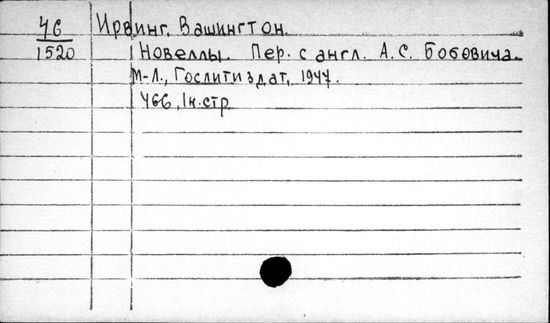 46 Ирвинг, Вашингтон.
1520 Новеллы. Пер. с англ. А.С. Бобовича.
М-Л., Гослитиздат, 1947.
466, 1н.стр